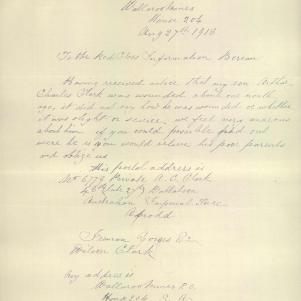 Wallaroo Mines
House 206
Aug 27th 1918
To the Red Cross Information Bureau
Having received notice that my son Arthur
Charles Clark was wounded about one month
ago, it did not say how he was wounded or whether
it was slight or severe. we feel very anxious
about him if you could possible find out
were he is you would relive his poor parents
and oblige us
His postal address is
No 6779 Private A. C. Clark
27th Battalion
Australian Imperial Force
Abrodd
Clark
My address is
Wallaroo Mines P.O.
House 206 S. A.